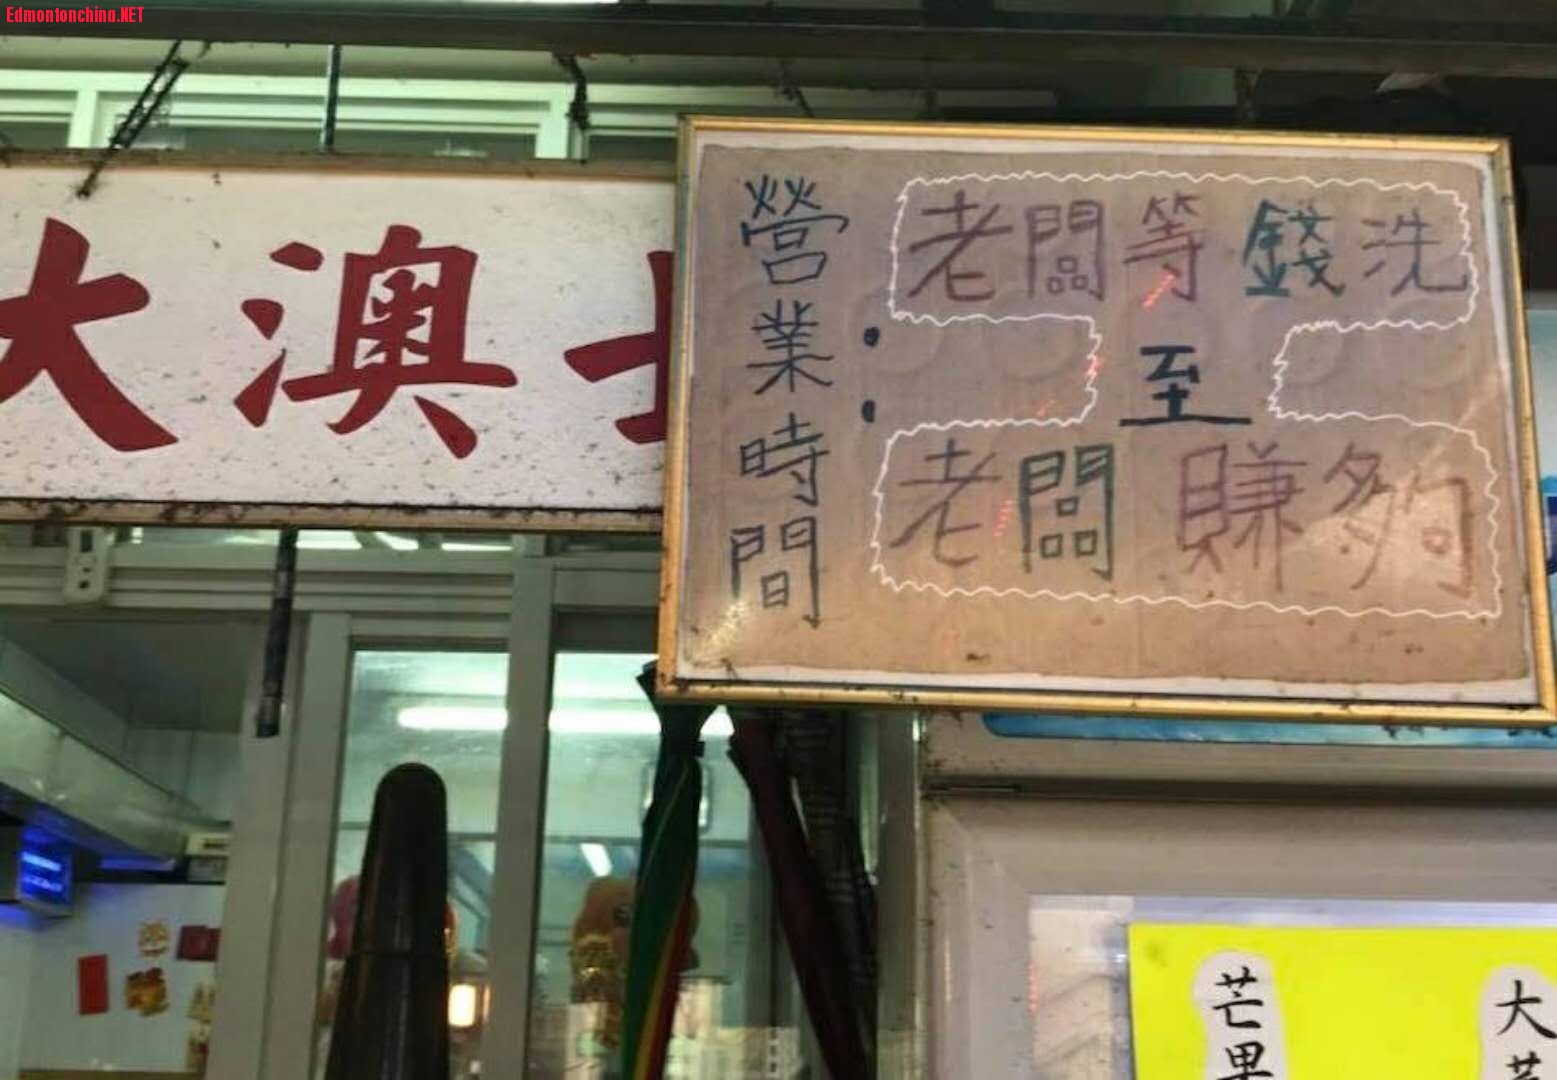 Edmontonchina.NET
大澳
營業時間：
老闆等錢洗
至
老闆賺夠
芒果
大芒